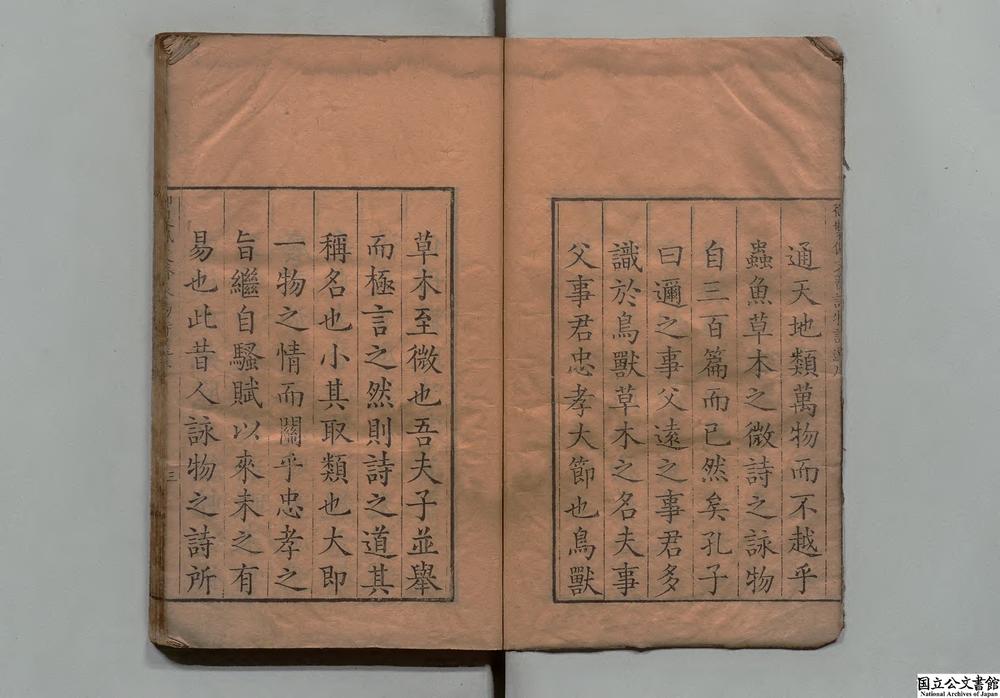 通天地類萬物而不越乎
蟲魚草木之微詩之詠物
自三百篇而已然矣孔子
曰邇之事父遠之事君多
識於鳥獸草木之名夫事
父事君忠孝大節也鳥獸
草木至微也吾夫子並舉
而極言之然則詩之道其
稱名也小其取類也大即
一物之情而關乎忠孝之
旨繼自騷賦以來未之有
易也此昔人詠物之詩所
三
国立公文書館
National Archives of Japan